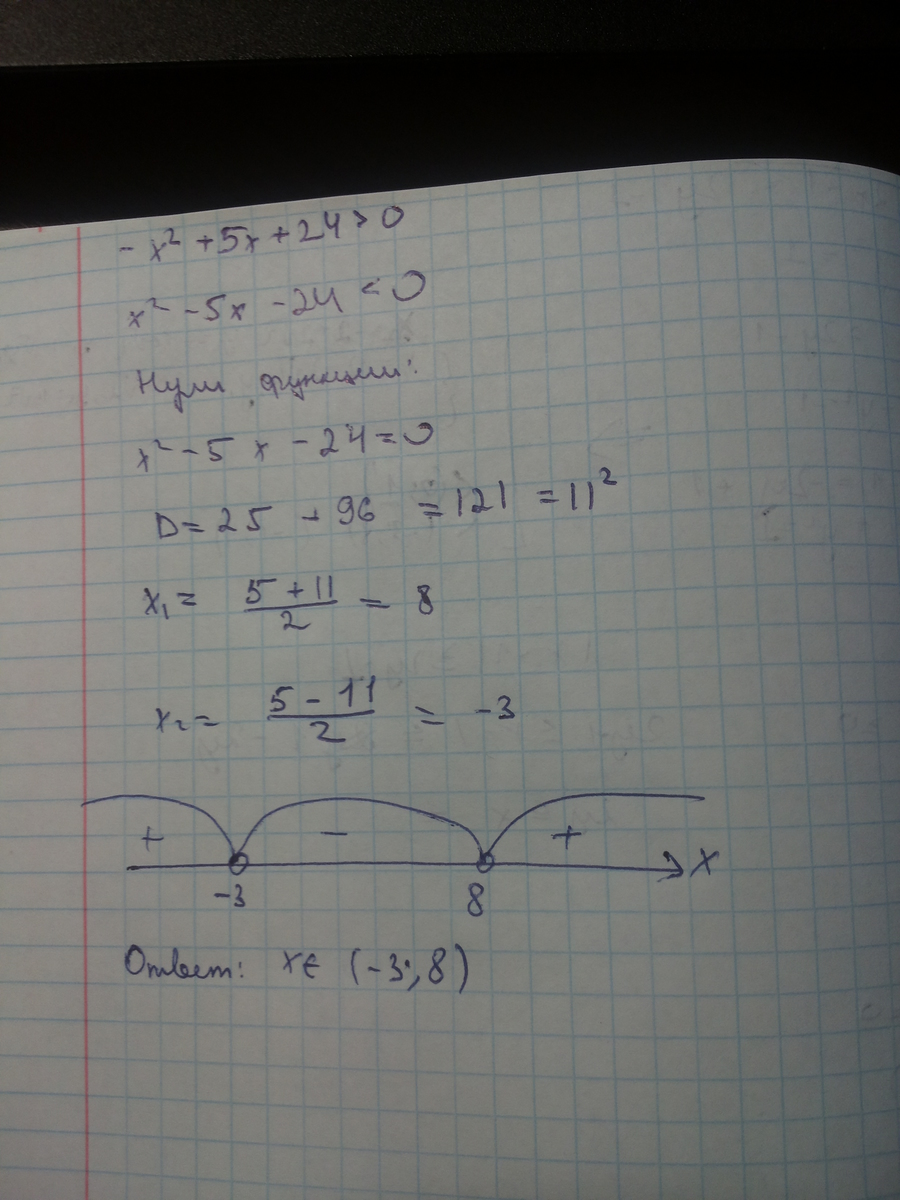 - x² + 5x + 24 > 0
x² - 5x - 24 < 0
Нули функции:
x² - 5x - 24 = 0
D = 25 + 96 = 121 = 11²
x₁ = (5 + 11)/2 = 8
x₂ = (5 - 11)/2 = -3
+ - +
-3 8 x
Ответ: x ∈ (-3; 8)